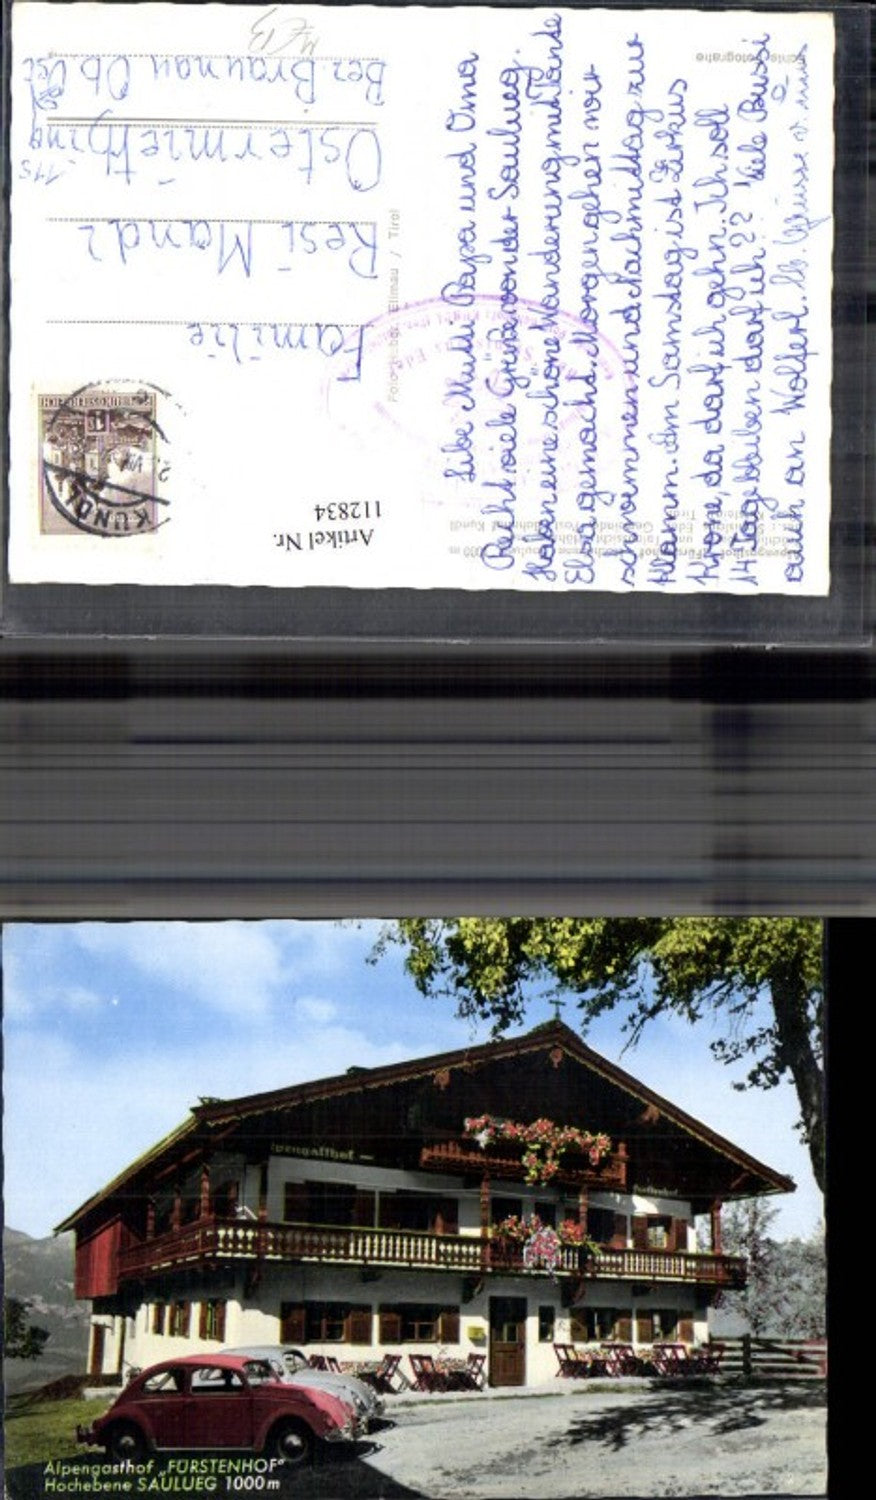 Libe Mutti Papa und Oma
Recht viele Grüße von der Saulueg.
Haben eine schöne Wanderung mit Tante
Elsa gemacht. Morgen gehen wir
schwimmen und Nachmittag zur
Klamm. Am Samstag ist Zirkus
Krone, da darf ich gehn. Ich soll
14 Tage bleiben darf ich?? Viele Bussi
auch an Wolferl. Grüsse v. uns
Familie
Resi Mandl
Ostermiething
115
Bez. Braunau Ob. Öst
Foto Ellmau / Tirol
Artikel Nr.
112834
KUNDL
Alpengasthof
Alpengasthof „FÜRSTENHOF“
Hochebene SAULUEG 1000m